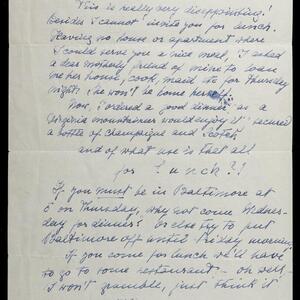 This is really very disappointing!
Besides I cannot invite you for lunch.
Having no house or apartment where
I could serve you a nice meal, I asked
a dear motherly friend of mine to loan
me her home, cook, maid etc for Thursday
night. (She won't be home herself)
Now, I ordered a good dinner, as a
mountaineer would enjoy it, secured
a bottle of champagne and Scotch
and of what use is that all
for Lunch?!
If you must be in Baltimore at
6 on Thursday, why not come Wednes-
day for dinner? Or else try to put
Baltimore off until Friday morning
If you come for lunch we'll have
to go to some restaurant - oh well -
I won't grumble, just think it